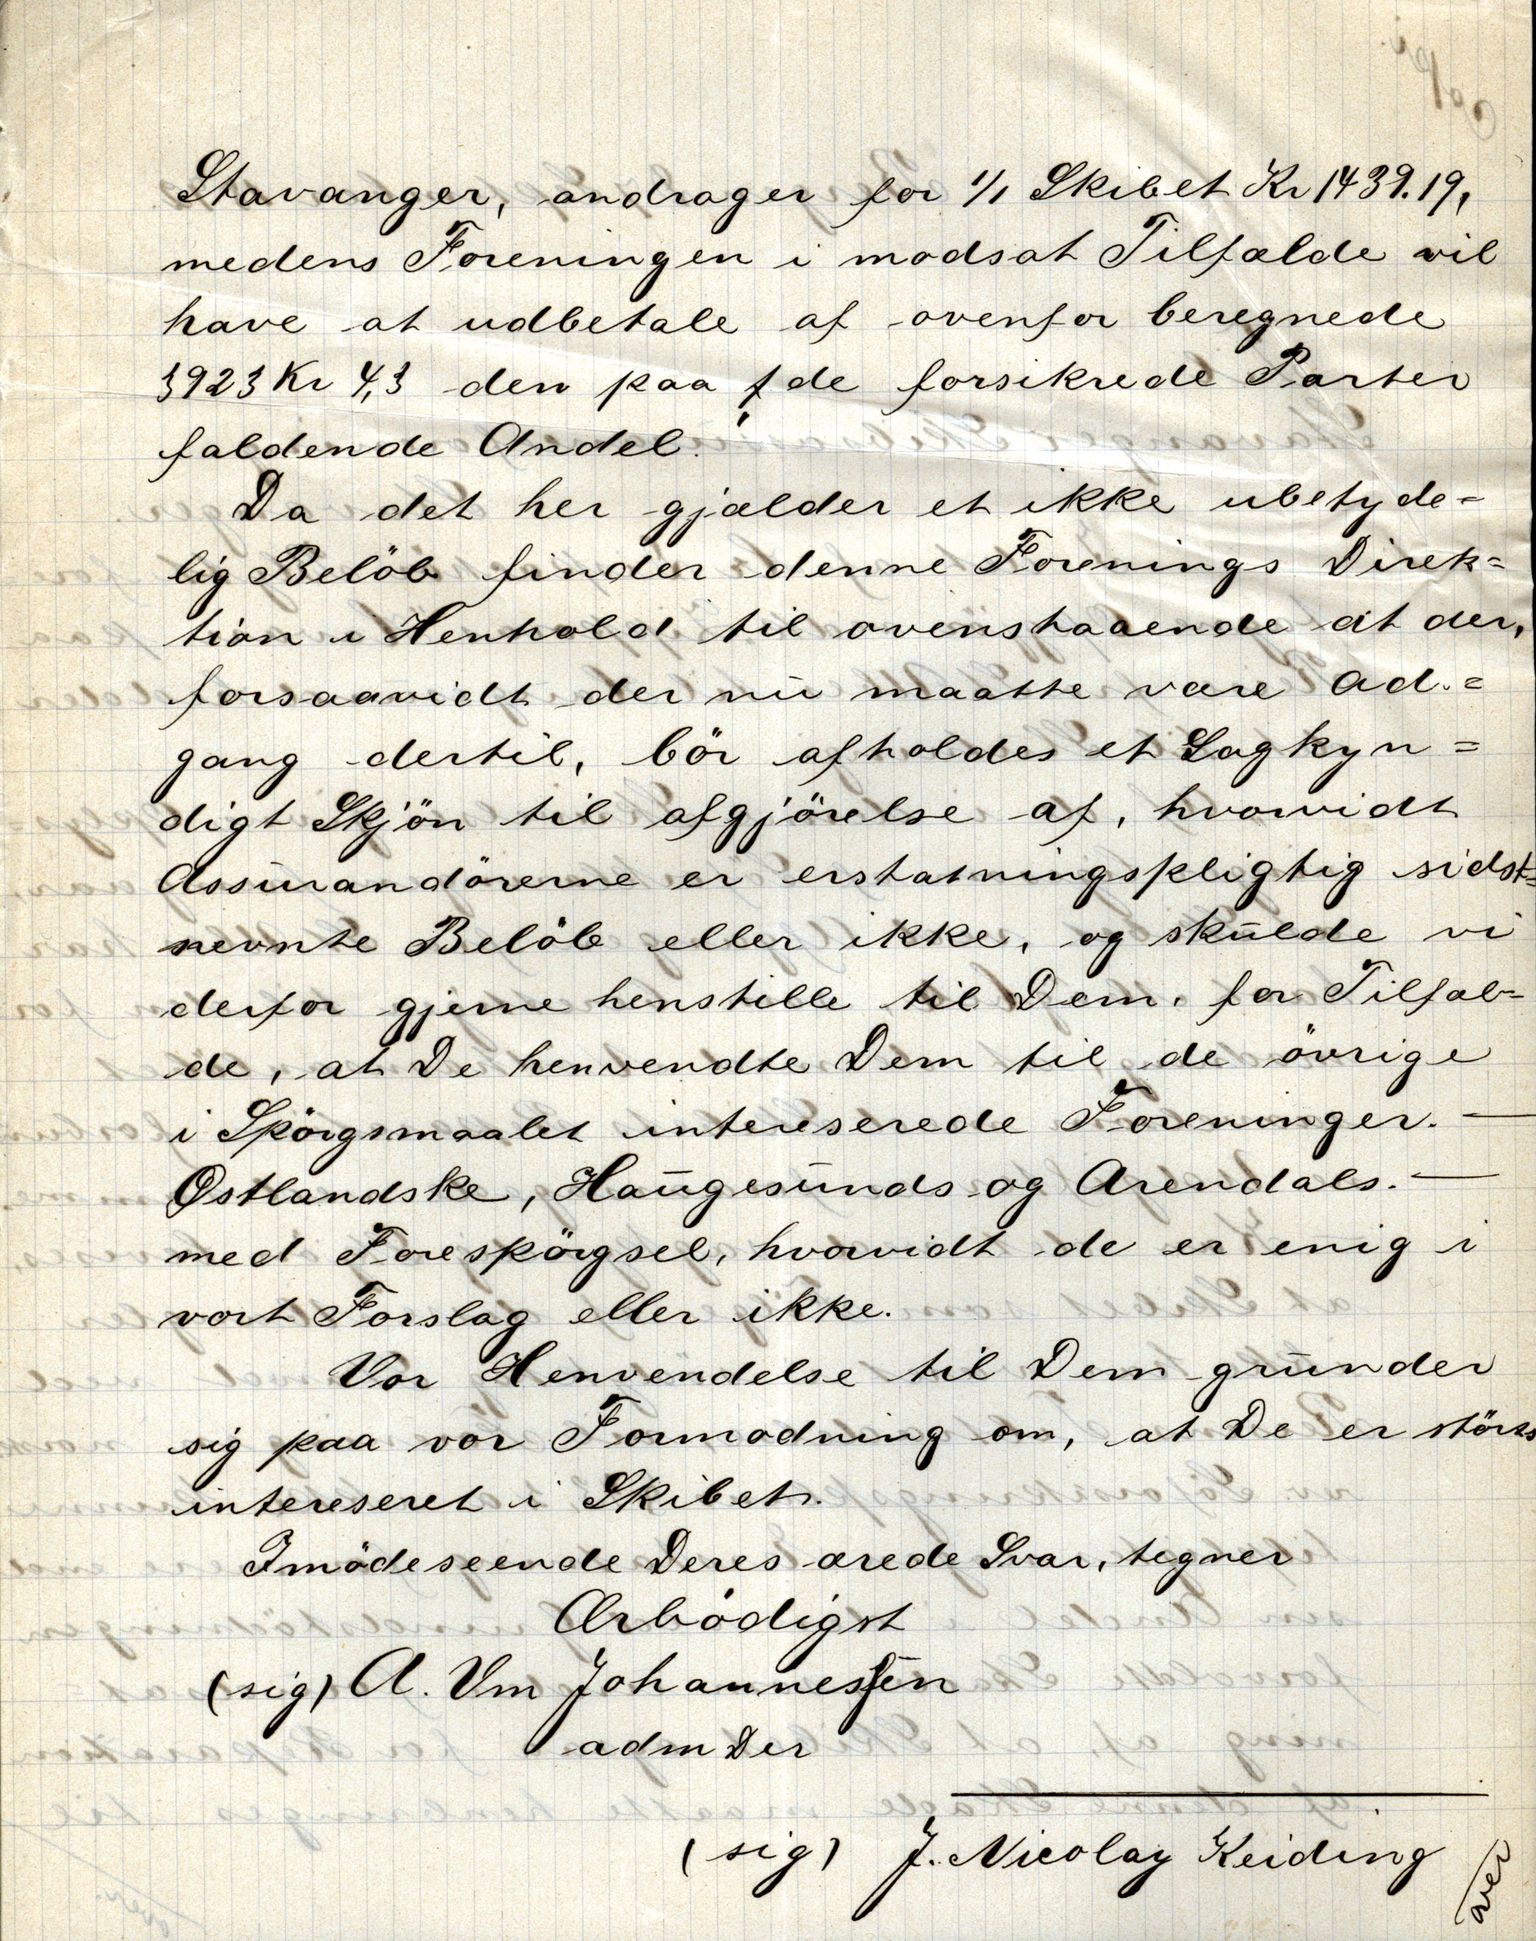 Stavanger, andrager for 1/1 Skibet Kr 1439.19,
medens Foreningen i modsat Tilfælde vil
have at udbetale af ovenfor beregnede
3923 Kr 43 den paa de forsikrede Parter
faldende Andel.
Da det her gjælder et ikke ubetyde=
lig Belöb finder denne Forenings Direk=
tion i Henhold til ovenstaaende at der,
forsaavidt der nu maatte være Ad=
gang dertil, bör afholdes et Sagkyn=
digt Skjön til afgjörelse af, hvorvidt
Assurandörerne er erstatningspligtig sidst=
nevnte Belöb eller ikke, og skulde vi
derfor gjerne henstille til Dem, for Tilfæl=
de, at De henvendte Dem til de övrige
i Spörgsmaalet intereserede Foreninger. —
Østlandske, Haugesunds og Arendals. —
med Forespörgsel, hvorvidt de er enig i
vort Forslag eller ikke.
Vor Henvendelse til Dem grunder
sig paa vor Formodning om, at De er störst
intereseret i Skibet.
Imödeseende Deres ærede Svar, tegner
Ærbödigst
(sig) A. Vm Johannessen
adm Dir
(sig) J. Nicolay Keiding
over